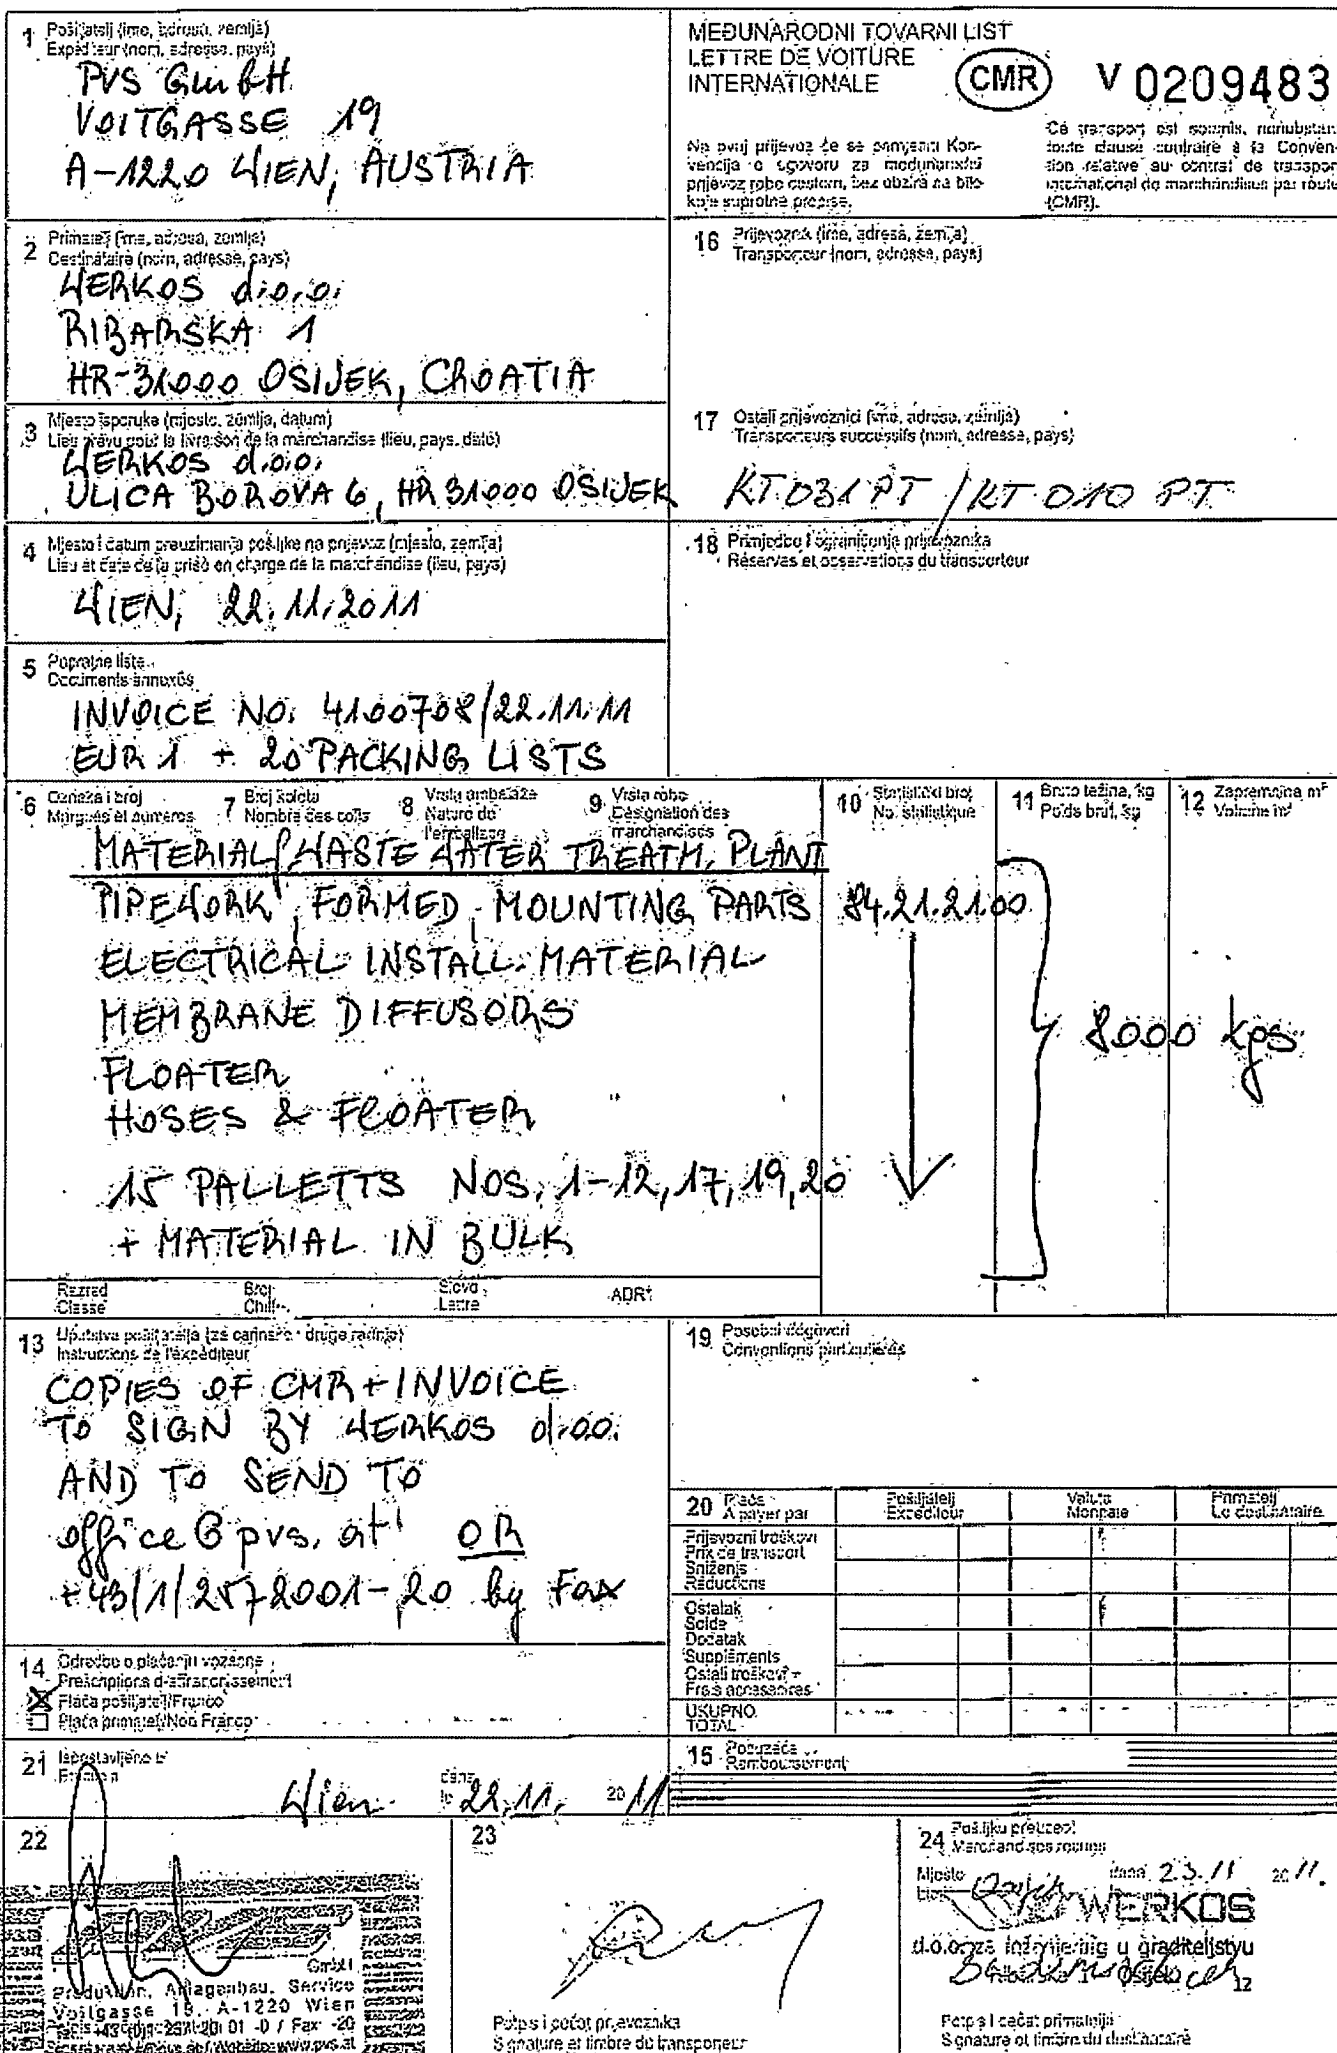 1 Pošiljatelj (ime, adresa, zemlja)
Expéditeur (nom, adresse, pays)
PVS GmbH
VOITGASSE 19
A-1220 WIEN, AUSTRIA
MEĐUNARODNI TOVARNI LIST
LETTRE DE VOITURE
INTERNATIONALE
CMR
V 0209483
Na ovaj prijevoz će se primjeniti Kon-
vencija o ugovoru za međunarodni
prijevoz robe cestom, bez obzira na bilo
koje suprotne propise.
Ce transport est soumis, nonobstant
toute clause contraire à la Conven-
tion relative au contrat de transport
international de marchandises par route
(CMR).
2 Primatelj (ime, adresa, zemlja)
Destinataire (nom, adresse, pays)
WERKOS d.o.o.
RIBARSKA 1
HR-31000 OSIJEK, CROATIA
16 Prijevoznik (ime, adresa, zemlja)
Transporteur (nom, adresse, pays)
3 Mjesto isporuke (mjesto, zemlja, datum)
Lieu prévu pour la livraison de la marchandise (lieu, pays, date)
WERKOS d.o.o.
ULICA BOROVA 6, HR 31000 OSIJEK
17 Ostali prijevoznici (ime, adresa, zemlja)
Transporteurs successifs (nom, adresse, pays)
KT 031 PT / KT 010 PT
4 Mjesto i datum preuzimanja pošiljke na prijevoz (mjesto, zemlja)
Lieu et date de la prise en charge de la marchandise (lieu, pays)
WIEN, 22.11.2011
18 Primjedbe i ograničenja prijevoznika
Réserves et observations du transporteur
5 Popratne liste
Documents annexés
INVOICE NO. 4100708/22.11.11
EUR 1 + 20 PACKING LISTS
6 Oznaka i broj
Marques et numéros
7 Broj koleta
Nombre des colis
8 Vrsta ambalaže
Nature de l'emballage
9 Vrsta robe
Désignation des marchandises
10 Statistički broj
No. statistique
11 Bruto težina, kg
Poids brut, kg
12 Zapremnina m³
Volume m³
MATERIAL WASTE WATER TREATM. PLANT
PIPEWORK, FORMED, MOUNTING PARTS 84.21.21.00
ELECTRICAL INSTALL. MATERIAL
MEMBRANE DIFFUSORS
8000 kgs
FLOATER
HOSES & FLOATER
15 PALLETTS NOS. 1-12, 17, 19, 20
+ MATERIAL IN BULK
Razred
Classe
Broj
Chiffre
Slovo
Lettre
ADR
13 Uputstva pošiljatelja (za carinske i druge radnje)
Instructions de l'expéditeur
COPIES OF CMR + INVOICE
TO SIGN BY WERKOS d.o.o.
AND TO SEND TO
office@pvs.at OR
+43/1/2572001-20 by Fax
19 Posebni dogovori
Conventions particulières
20 Plaća
A payer par
Pošiljatelj
Expéditeur
Valuta
Monnaie
Primatelj
Le destinataire
Prijevozni troškovi
Prix de transport
Sniženje
Réductions
Ostatak
Solde
Dodatak
Suppléments
Ostali troškovi
Frais accessoires
UKUPNO
TOTAL
14 Odredbe o plaćanju vozarine
Prescriptions d'affranchissement
X Plaća pošiljatelj/Franco
Plaća primatelj/Non Franco
21 Ispostavljeno u
Etablie à
Wien
dana
le 22.11. 20 11
15 Pouzeće
Remboursement
22
GmbH
Produktion, Anlagenbau, Service
Voitgasse 19, A-1220 Wien
23
Potpis i pečat prijevoznika
Signature et timbre du transporteur
24 Pošiljku preuzeo
Marchandises reçues
Mjesto
Lieu
dana 23.11 20 11.
WERKOS
d.o.o. za inženjering u graditeljstvu
12
Potpis i pečat primatelja
Signature et timbre du destinataire